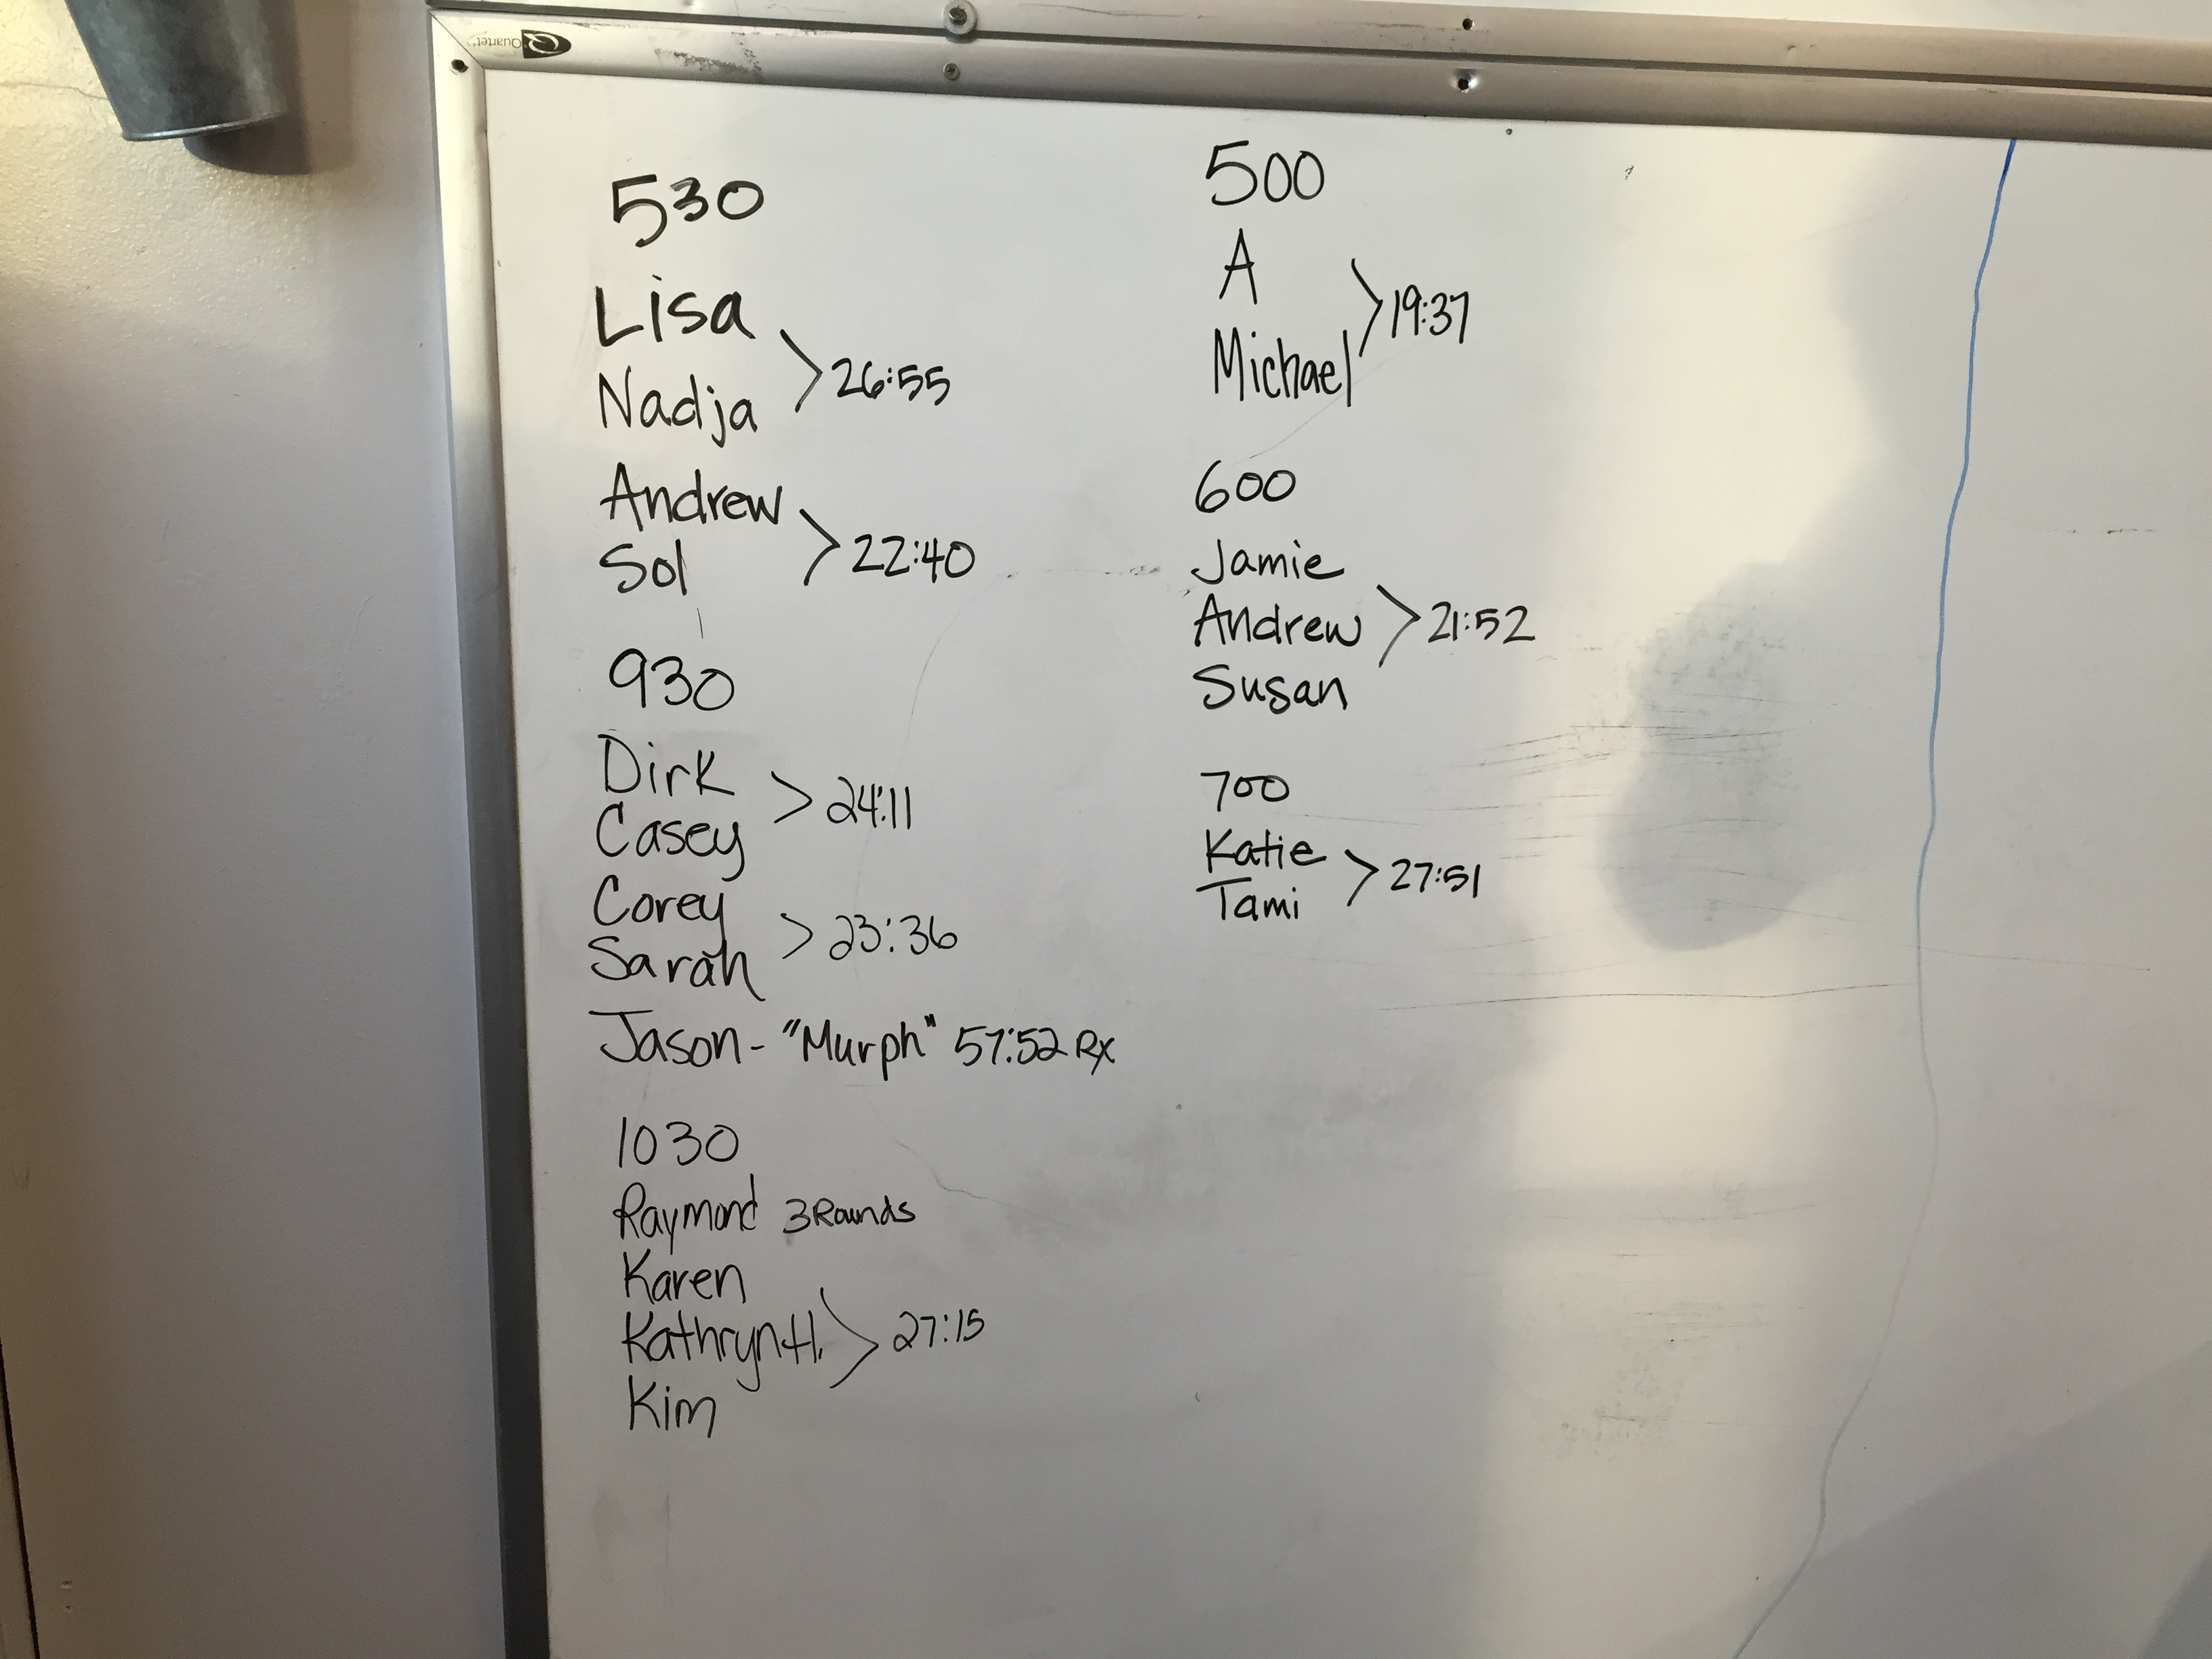 Quartet
530
Lisa
Nadja
> 26:55
Andrew
Sol
> 22:40
930
Dirk
Casey
> 24:11
Corey
Sarah
> 23:36
Jason - "Murph" 57:52 Rx
1030
Raymond 3 Rounds
Karen
Kathryn H.
Kim
> 27:15
500
A
Michael
> 19:37
600
Jamie
Andrew
Susan
> 21:52
700
Katie
Tami
> 27:51